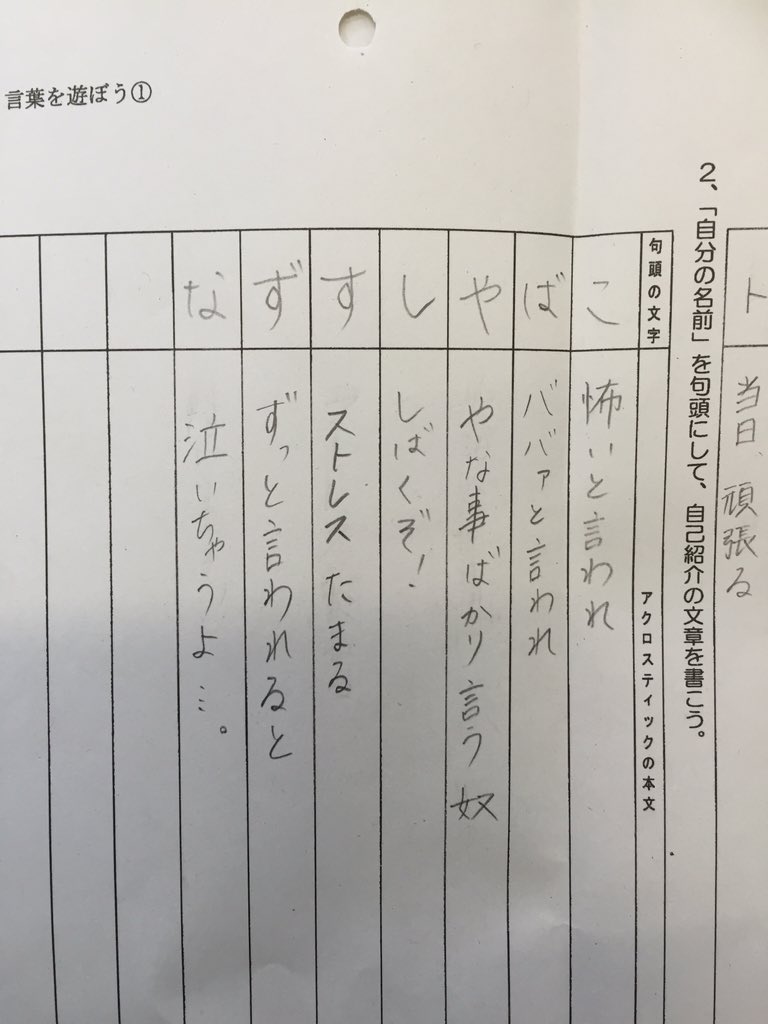 言葉を遊ぼう①
ト 当日、頑張る
2、「自分の名前」を句頭にして、自己紹介の文章を書こう。
句頭の文字 アクロスティックの本文
こ 怖いと言われ
ば ババァと言われ
や やな事ばかり言う奴
し しばくぞ!
す ストレスたまる
ず ずっと言われると
な 泣いちゃうよ…。